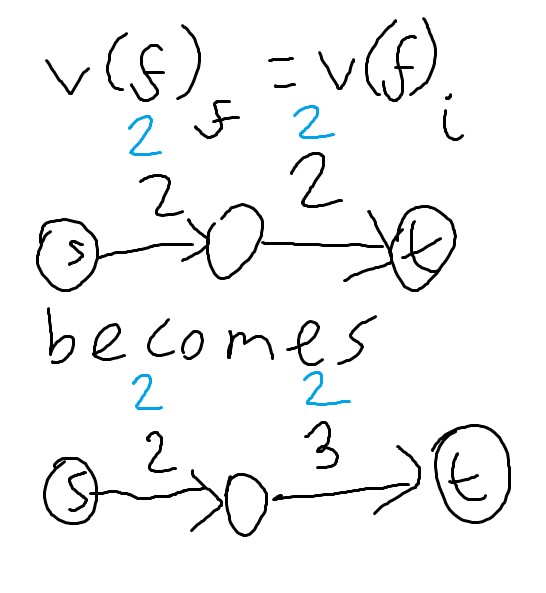 v(f)f = v(f)i
2 2
2 2
s t
becomes
2 2
2 3
s t